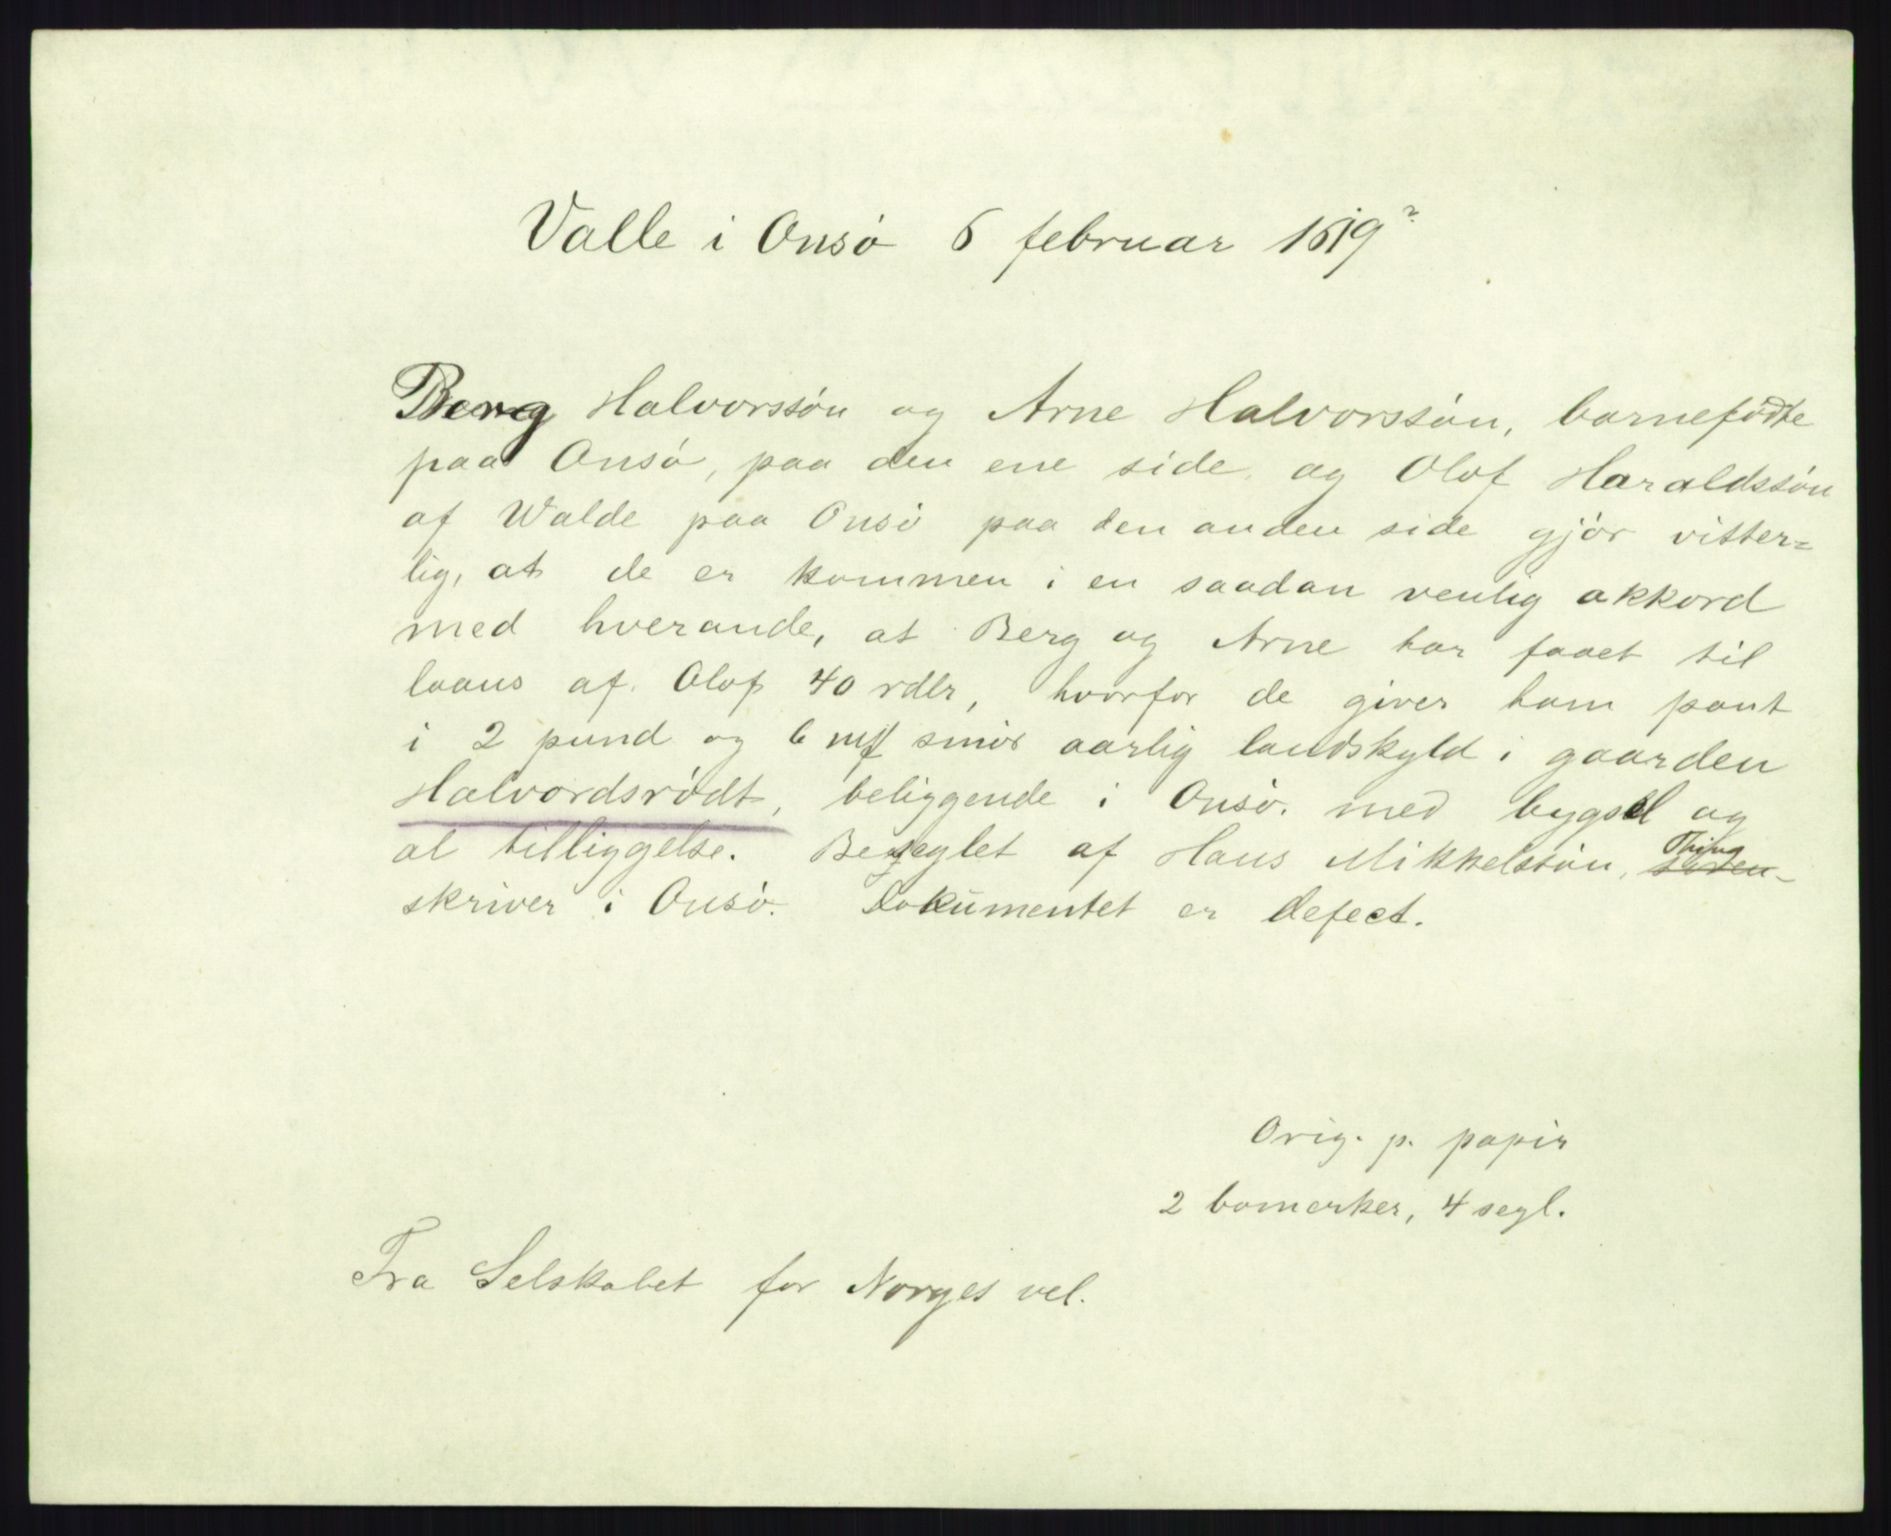 Valle i Onsö 6 februar 1619?
Berg Halvorssön og Arne Halvorssön, barnefödte
paa Onsö, paa den ene side og Olof Haraldssön
af Walde paa Onsö paa den anden side gjör vitter=
lig, at de er kommen i en saadan venlig akkord
med hverande, at Berg og Arne har faaet til
laans af Olof 40 rdlr, hvorfor de giver ham pant
i 2 pund og 6 mk smör aarlig landskyld i gaarden
Halvordsrödt, beliggende i Onsö. med bygsel og
al tilliggelse. Beseglet af Hans Mikkelssön, Thing
skriver i Onsö. Dokumentet er defect.
Orig. p. papir
2 bomerker, 4 segl.
Fra Selskabet for Norges vel.